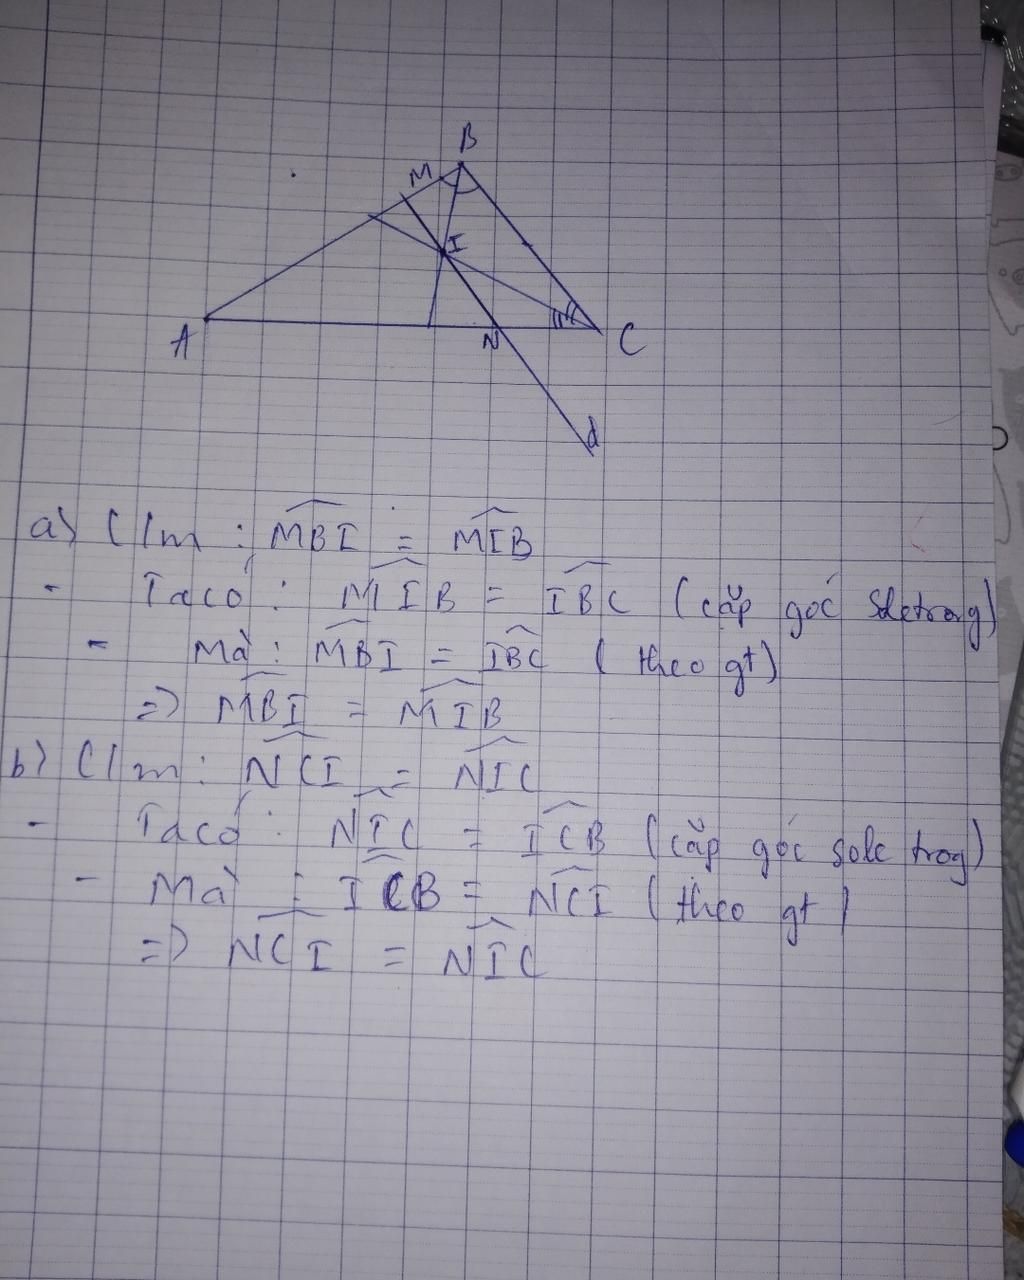 B
M
I
A
N
C
d
a) C/m : MBI = MIB
- Ta có : MIB = IBC (cặp góc sletrog)
- Mà : MBI = IBC ( theo gt)
=> MBI = MIB
b) C/m : NCI = NIC
- Ta có : NIC = ICB (cặp góc sole trog)
- Mà : ICB = NCI ( theo gt )
=> NCI = NIC